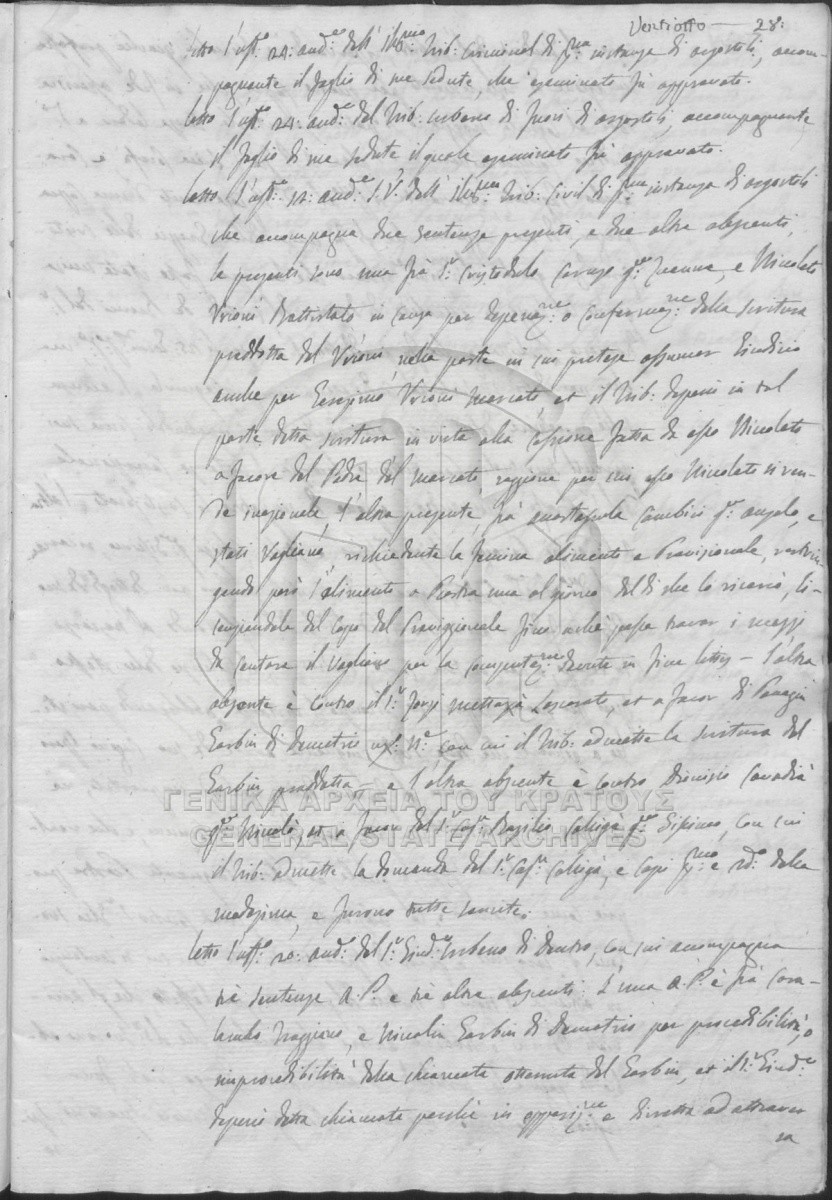 Ventiotto — 28:
Letto l'uff.o 24: and.e dell' Ill.mo Trib: Criminal di p.ma instanza di Argostoli, accom-
pagnante il foglio di sue sedute, che esaminato fù approvato.
Letto l'uff.o 24. and.e del Trib: urbano di fuori di Argostoli, accompagnante
il foglio di sue sedute il quale esaminato fù approvato.
Letto l'uff.o 12. and.e S.V. dell' Ill.mo Trib: Civil di p.ma instanza di Argostoli
che accompagna due sentenze presenti, e due altre absenti,
le presenti sono una frà S.r Cristodulo Caruso q.m Zuanne, e Nicolato
Vrioni Battistato in causa per o della scrittura
prodotta dal Vrioni, nella parte in cui pretese assumer Giudicio
anche per Gerasimo Vrioni Marcato, et il Trib: in tal
parte detta scrittura in vista alla cessione fatta da esso Nicolato
a favore del Padre del Marcato raggione per cui esso Nicolato si ren-
de irrazionale, l'altra presente, frà Cambici q.m Angelo, e
Stati Vaglianò, richiedente la femina alimento e Provisionale,
gendo però l'alimento a Piastra una al giorno dal dì che lo ricercò, li-
cenziandola dal capo del Provisionale fino a che possa trovar i mezzi
da sentare il Vagliano per la in fine letta — l'altra
absente è contro il S.r Zorzi Mettaxà Loscarato, et a favor di Panagin
Garbin di Demetrio con cui il Trib: admette la scrittura del
Garbin prodotta — e l'altra absente è contro Dionisio Cavadià
q.m Nicolò, et a favor del S.r Cap.n Basilio Calligà q.m Spiro, con cui
il Trib: admette la domanda del S.r Cap.n Calligà, e capi p.mo e 2do della
medesima, e furono tutte sancite.
Letto l'uff.o 20: and.e del S.r Giud.e Urbano di Dentro, con cui accompagna
trè sentenze A.P. e trè altre absenti. L'una A.P. è frà
e Nicolin Garbin di Demetrio per procedibilità, o
improcedibilità della chiamata ottenuta dal Garbin, et il S.r Giud.e
detta chiamata perché in e diretta ad attraver
sa
ΓΕΝΙΚΑ ΑΡΧΕΙΑ ΤΟΥ ΚΡΑΤΟΥΣ
GENERAL STATE ARCHIVES